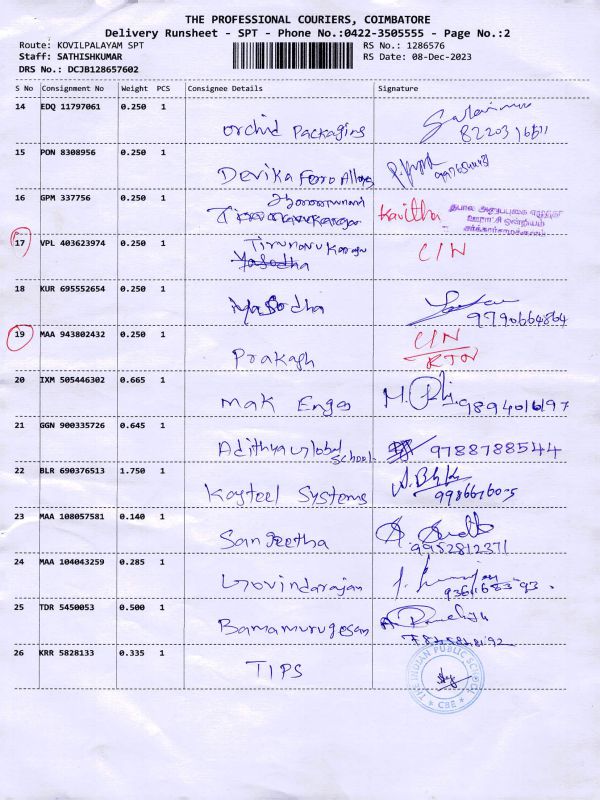 THE PROFESSIONAL COURIERS, COIMBATORE
Delivery Runsheet - SPT - Phone No.:0422-3505555 - Page No.:2
Route: KOVILPALAYAM SPT
RS No.: 1286576
Staff: SATHISHKUMAR
RS Date: 08-Dec-2023
DRS No.: DCJB128657602
S No Consignment No Weight PCS Consignee Details Signature
14 EDQ 11797061 0.250 1 Orchid Packagings
15 PON 8308956 0.250 1 Devika Ferro Alloys
16 GPM 337756 0.250 1 Kavitha
17 VPL 403623974 0.250 1 Yasodha C/N
18 KUR 695552654 0.250 1 Yasodha 9790664864
19 MAA 943802432 0.250 1 Prakash C/N
RTN
20 IXM 505446302 0.665 1 Mak Engg 9894016197
21 GGN 900335726 0.645 1 Adithya Global School 9788788544
22 BLR 690376513 1.750 1 Kayteel Systems
23 MAA 108057581 0.140 1 Sangeetha 9952812371
24 MAA 104043259 0.285 1 Govindarajan
25 TDR 5450053 0.500 1 Bamamurugesan
26 KRR 5828133 0.335 1 TIPS THE INDIAN PUBLIC SCHOOL
CBE